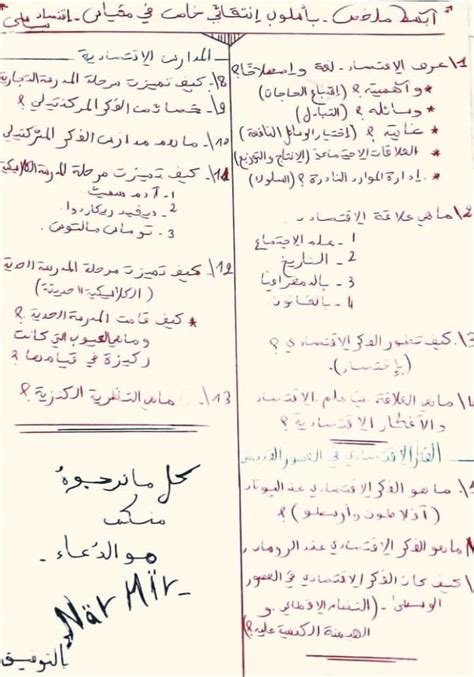 أبسط ملخص - بأسلوب إنتقائي خاص في مقياس - إقتصاد سياسي
1\ عرف الاقتصاد - لغة وإصطلاحا؟
* وأهميته؟ (إشباع الحاجات)
* وسائله؟ (التبادل)
* غاياته؟ (إختيار الوسائل النافعة)
العلاقات الاجتماعية (الانتاج والتوزيع)
* إدارة الموارد النادرة؟ (السلوك)
2\ ماهي علاقة الاقتصاد بـ
1 - علم الاجتماع
2 - التاريخ
3 - بالديمغرافيا
4 - بالقانون
3\ كيف تطور الفكر الاقتصادي؟
(بإختصار).
ماهي العلاقة علم الاقتصاد
والأفكار الاقتصادية؟
الفكر الاقتصادي في العصور
ما هو الفكر الاقتصادي عند اليونان
(أفلاطون وأرسطو)؟
ماهو الفكر الاقتصادي عند الرومان
كيف كان الفكر الاقتصادي في العصور
الوسطى - (النظام الإقطاعي و
الهيمنة الكنسية عليه)؟
المدارس الاقتصادية
8\ كيف تميزت مرحلة المدرسة التجارية
9\ خصائص الفكر المركنتيلي؟
10\ ماهي مدارس الفكر المركنتيلي
11\ كيف تميزت مرحلة المدرسة الكلاسيكية
1 - آدم سميث
2 - ديفيد ريكاردو
3 - توماس مالتوس
12\ كيف تميزت مرحلة المدرسة الحدية
(الكلاسيكية الحديثة)
* كيف قامت المدرسة الحدية؟
وماهي العيوب التي كانت
ركيزة في قيامها؟
13\ ماهي النظرية الكنزية؟
كل ما نرجوه
منكم
هو الدعاء -
När Mïr-
بالتوفيق